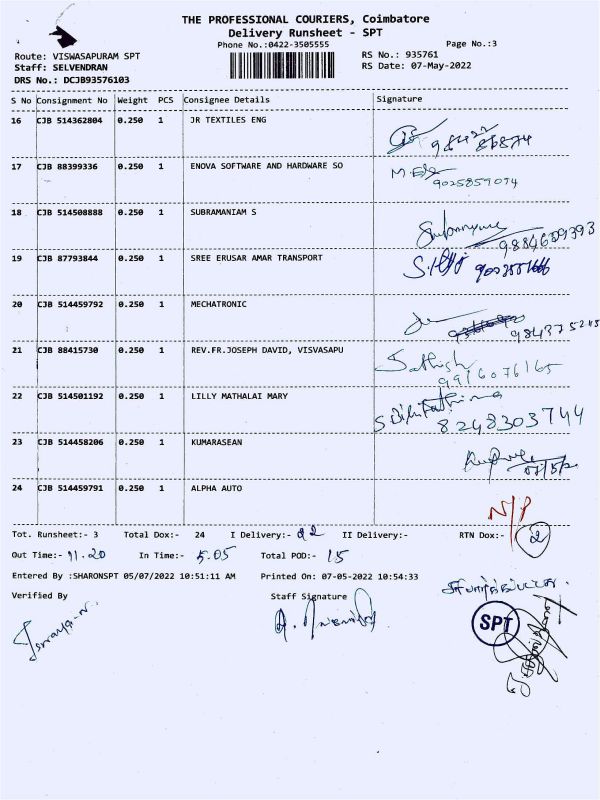 THE PROFESSIONAL COURIERS, Coimbatore
Delivery Runsheet - SPT
Phone No.:0422-3505555
Page No.:3
Route: VISWASAPURAM SPT
RS No.: 935761
Staff: SELVENDRAN
RS Date: 07-May-2022
DRS No.: DCJB93576103
S No Consignment No Weight PCS Consignee Details Signature
16 CJB 514362804 0.250 1 JR TEXTILES ENG
17 CJB 88399336 0.250 1 ENOVA SOFTWARE AND HARDWARE SO
9025859074
18 CJB 514508888 0.250 1 SUBRAMANIAM S
9884609393
19 CJB 87793844 0.250 1 SREE ERUSAR AMAR TRANSPORT
20 CJB 514459792 0.250 1 MECHATRONIC
21 CJB 88415730 0.250 1 REV.FR.JOSEPH DAVID, VISVASAPU Sathish
9916076165
22 CJB 514501192 0.250 1 LILLY MATHALAI MARY
8248303744
23 CJB 514458206 0.250 1 KUMARASEAN
24 CJB 514459791 0.250 1 ALPHA AUTO N/P
Tot. Runsheet:- 3 Total Dox:- 24 I Delivery:- 22 II Delivery:- RTN Dox:- 2
Out Time:- 11.20 In Time:- 5.05 Total POD:- 15
Entered By :SHARONSPT 05/07/2022 10:51:11 AM Printed On: 07-05-2022 10:54:33
Verified By Staff Signature
SPT